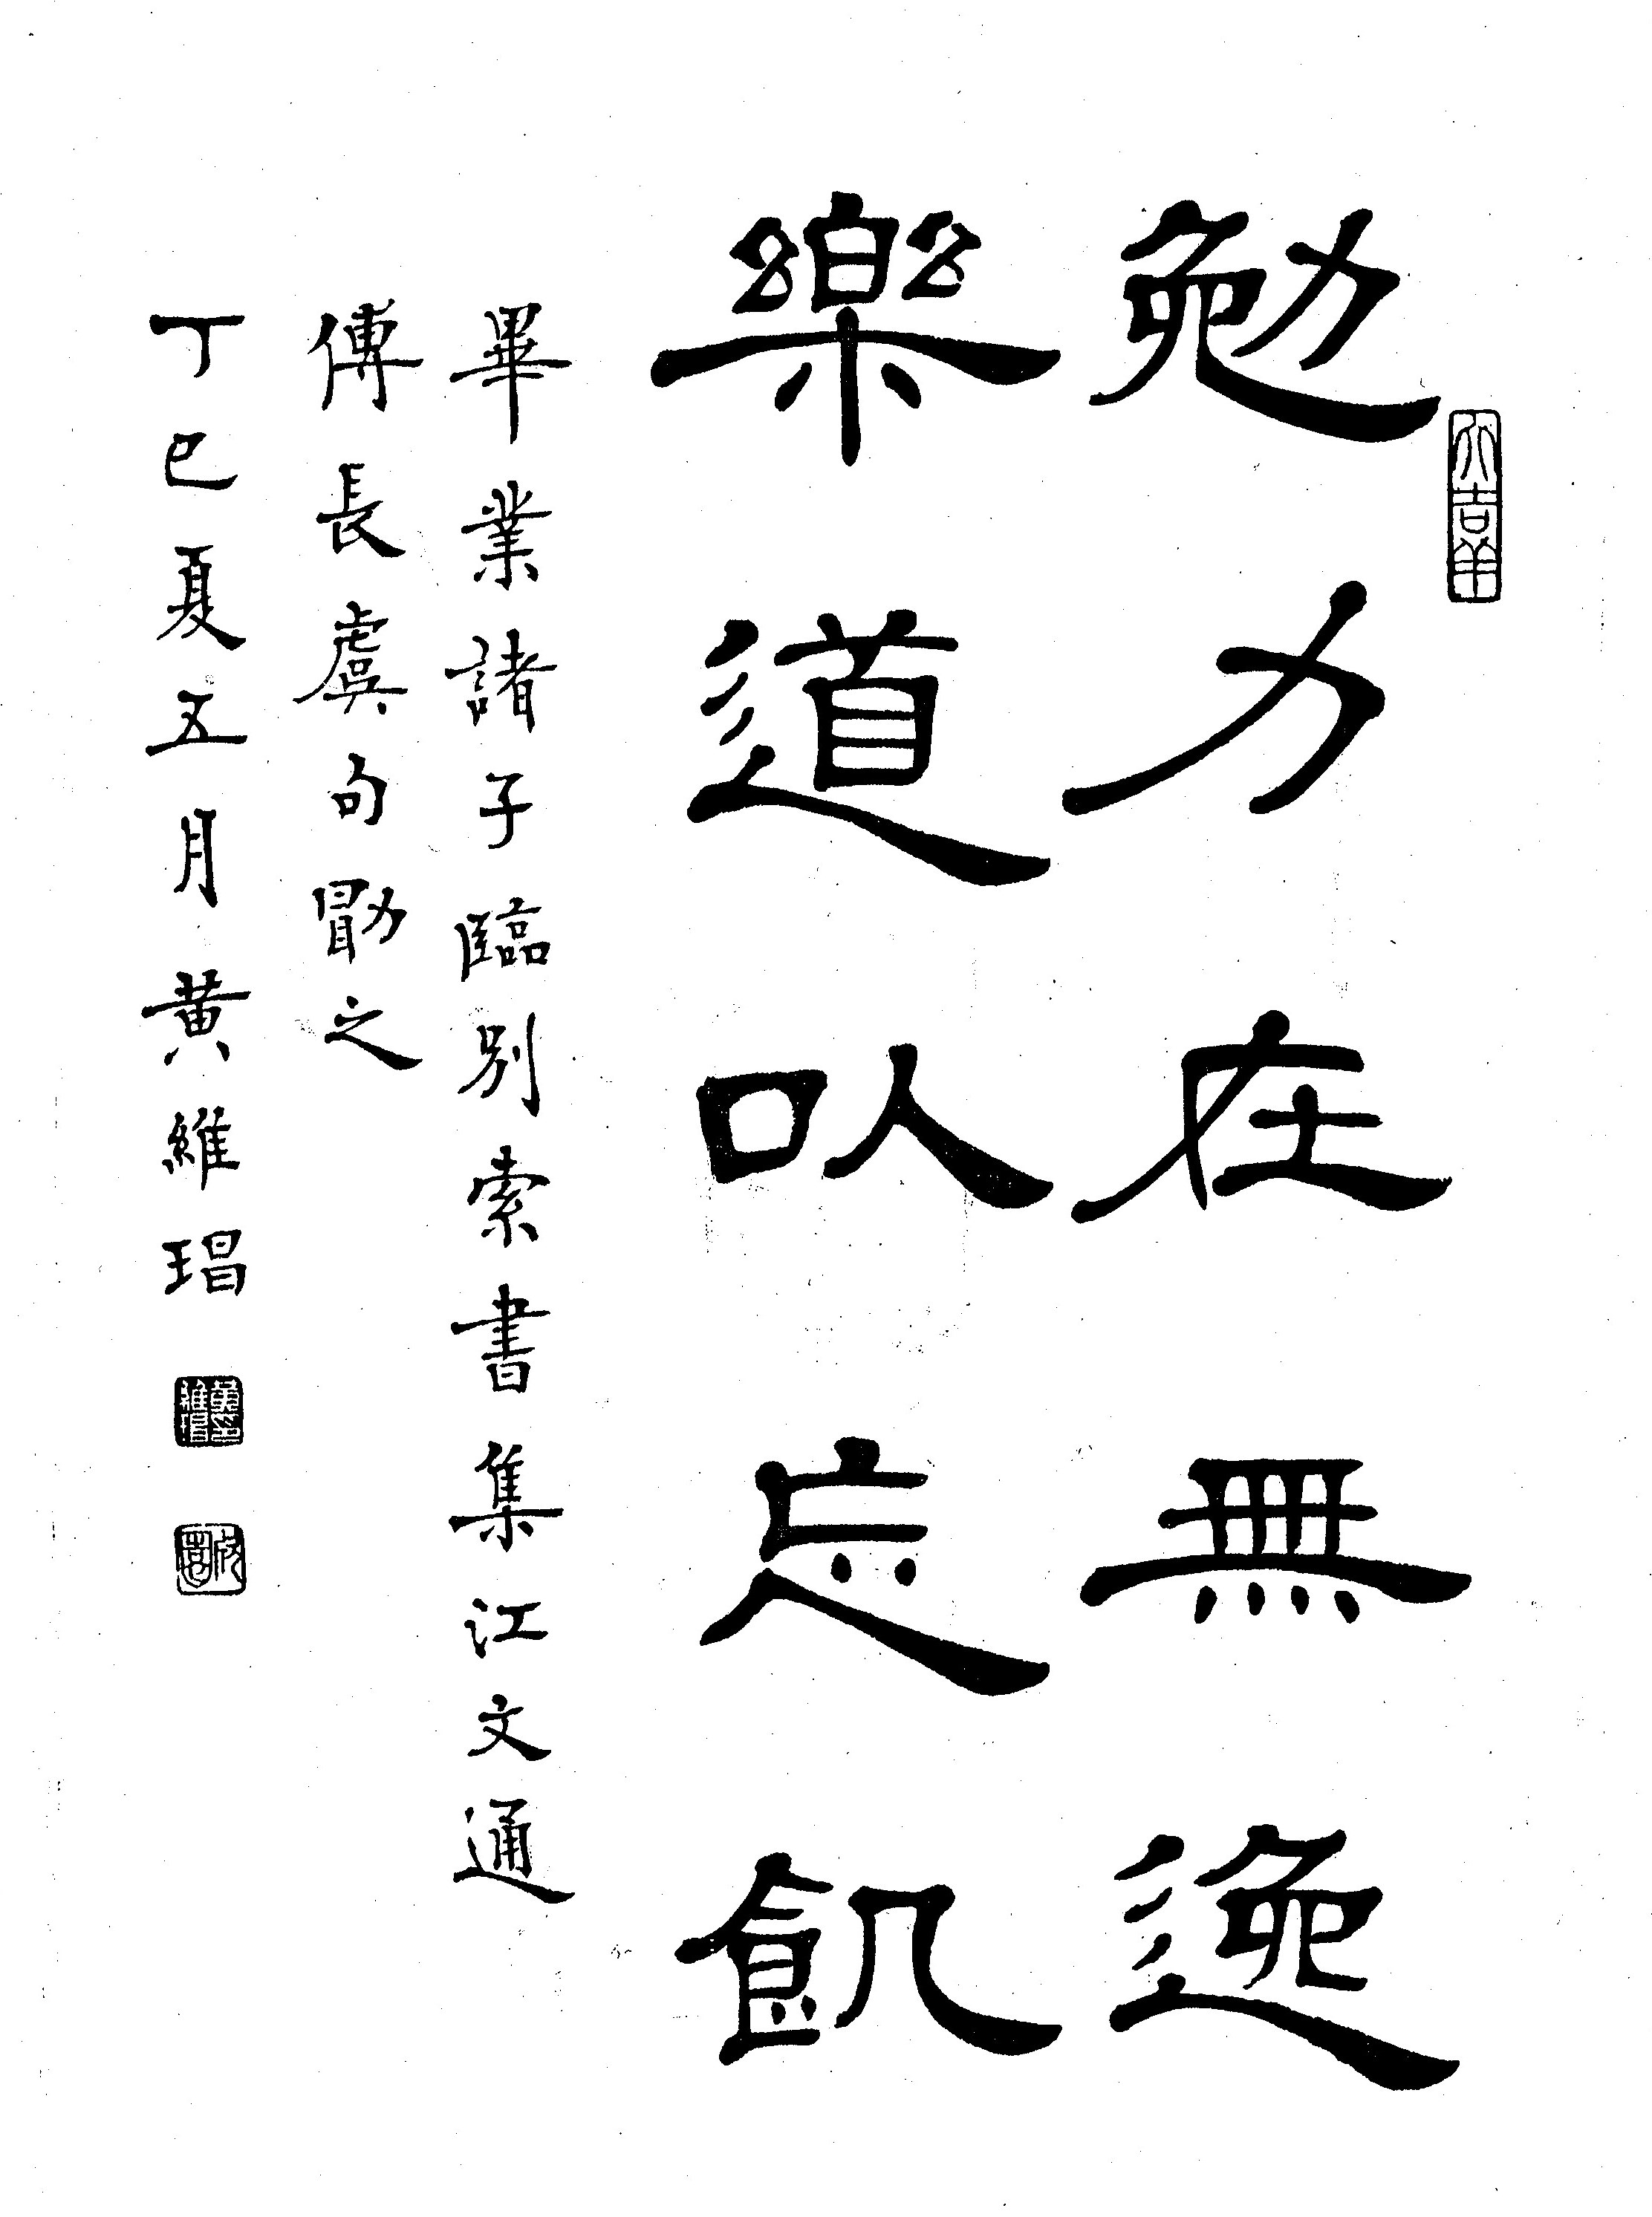 大吉羊
勉力在無逸
樂道以忘飢
畢業諸子臨別索書集江文通
傅長虞句勖之
丁巳夏五月黄維琩
黄維琩印